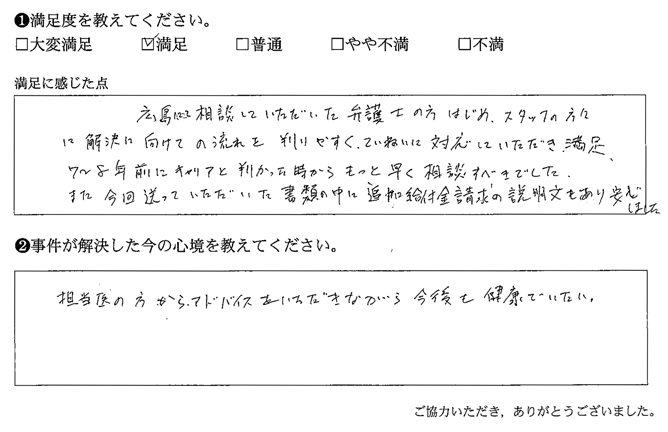 ❶満足度を教えてください。
□大変満足 ☑満足 □普通 □やや不満 □不満
満足に感じた点
広島にて相談していただいた弁護士の方はじめ、スタッフの方々
に解決に向けての流れを判りやすく、ていねいに対応していただき満足、
7〜8年前にキャリアと判かった時からもっと早く相談すべきでした。
また今回送っていただいた書類の中に追加給付金請求の説明文もあり安心
しました
❷事件が解決した今の心境を教えてください。
担当医の方から、アドバイスをいただきながら今後も健康でいたい。
ご協力いただき，ありがとうございました。